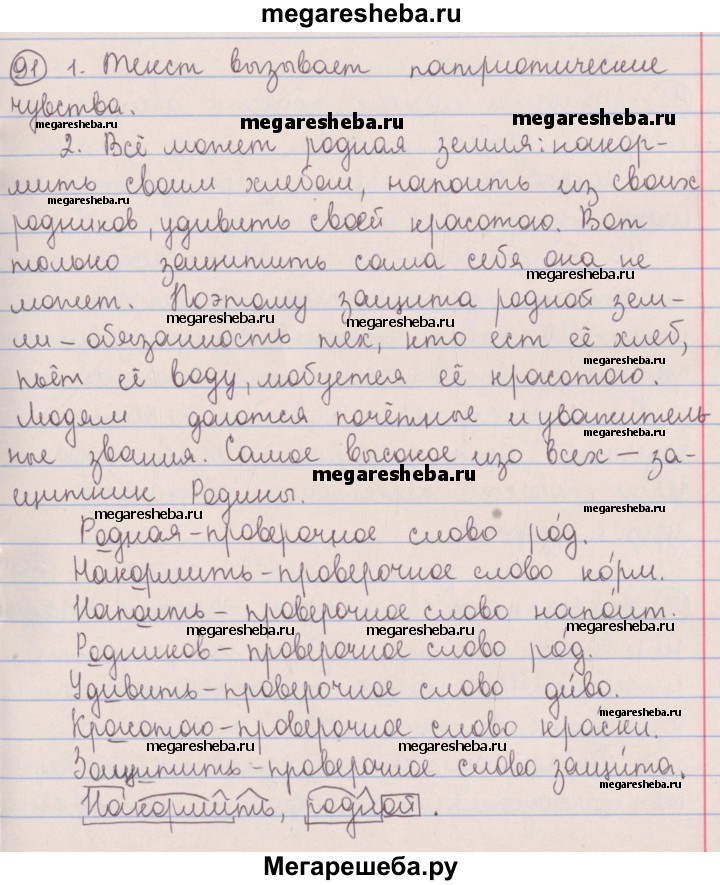 megaresheba.ru
91 1. Текст вызывает патриотические
чувства.
megaresheba.ru
megaresheba.ru
megaresheba.ru
2. Всё может родная земля: накор-
megaresheba.ru
мить своим хлебом, напоить из своих
megaresheba.ru
родников, удивить своей красотою. Вот
только защитить сама себя она не
megaresheba.ru
может. Поэтому защита родной зем-
megaresheba.ru
megaresheba.ru
ли – обязанность тех, кто ест её хлеб,
megaresheba.ru
пьёт её воду, любуется её красотою.
Людям даются почётные и уважитель
megaresheba.ru
ные звания. Самое высокое изо всех – за-
megaresheba.ru
щитник Родины.
megaresheba.ru
megaresheba.ru
Родная – проверочное слово ро́д.
Накормить – проверочное слово ко́рм.
Напоить – проверочное слово напо́ит.
megaresheba.ru
megaresheba.ru
megaresheba.ru
Родников – проверочное слово ро́д.
Удивить – проверочное слово ди́во.
megaresheba.ru
Красотою – проверочное слово кра́ски.
megaresheba.ru
megaresheba.ru
Защитить – проверочное слово защи́та.
megaresheba.ru
Накормить, родной.
Мегарешеба.ру